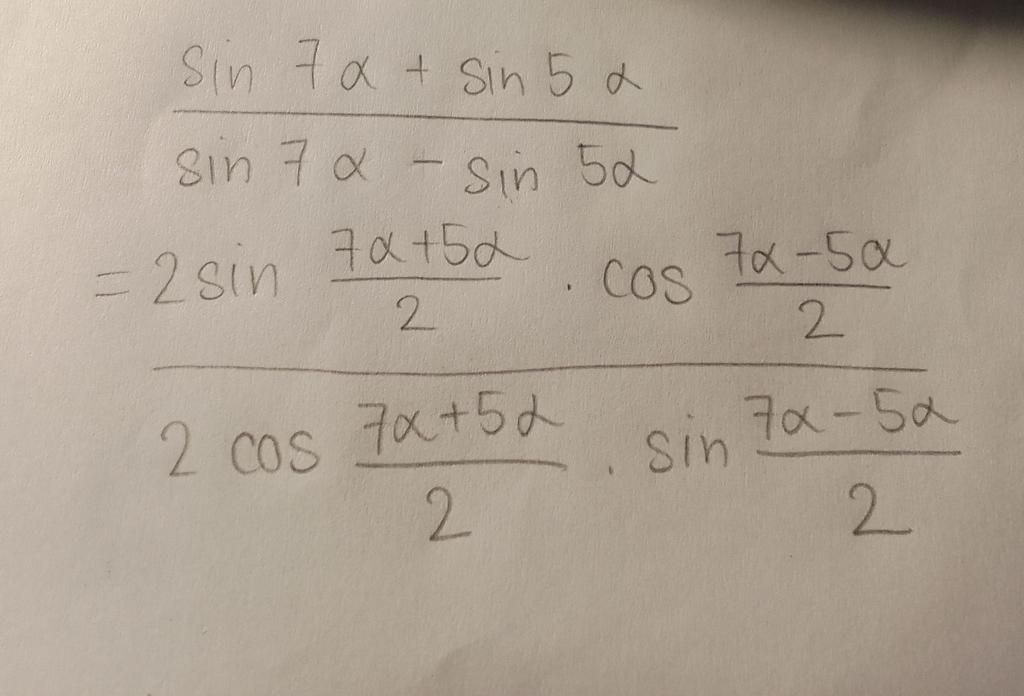 sin 7α + sin 5α
sin 7α - sin 5α
= 2 sin 7α+5α/2 . cos 7α-5α/2
2 cos 7α+5α/2 . sin 7α-5α/2